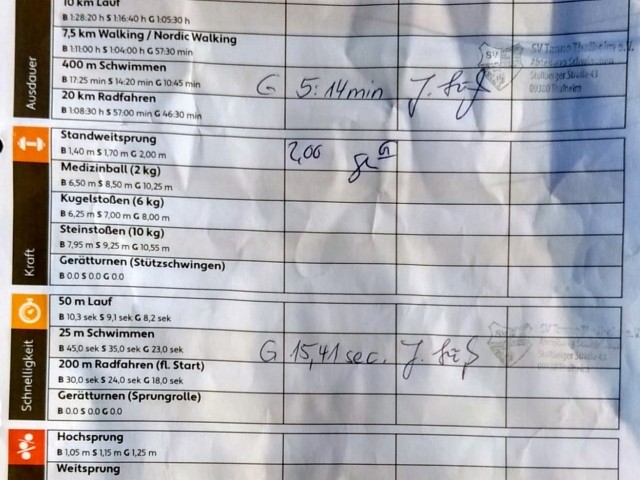 10 km Lauf
B 1:28:20 h S 1:16:40 h G 1:05:30 h
7,5 km Walking / Nordic Walking
B 1:11:00 h S 1:04:00 h G 57:30 min
SV Tanne Thalheim e.V.
400 m Schwimmen
B 17:25 min S 14:20 min G 10:45 min
G 5:14min J. Süß
Stollberger Straße 43
09380 Thalheim
20 km Radfahren
B 1:08:30 h S 57:00 min G 46:30 min
Ausdauer
Standweitsprung
B 1,40 m S 1,70 m G 2,00 m
2,00
Medizinball (2 kg)
B 6,50 m S 8,50 m G 10,25 m
Kugelstoßen (6 kg)
B 6,25 m S 7,00 m G 8,00 m
Steinstoßen (10 kg)
B 7,95 m S 9,25 m G 10,55 m
Gerätturnen (Stützschwingen)
B 0.0 S 0.0 G 0.0
Kraft
50 m Lauf
B 10,3 sek S 9,1 sek G 8,2 sek
25 m Schwimmen
B 45,0 sek S 35,0 sek G 23,0 sek
G 15,41 sec. J. Süß
200 m Radfahren (fl. Start)
B 30,0 sek S 24,0 sek G 18,0 sek
Gerätturnen (Sprungrolle)
B 0.0 S 0.0 G 0.0
Schnelligkeit
Hochsprung
B 1,05 m S 1,15 m G 1,25 m
Weitsprung